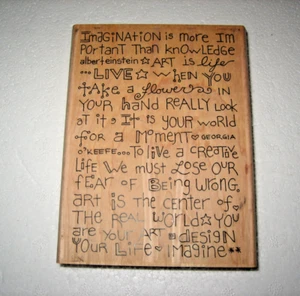 Imagination is more Im
portant Than knowledge
albert einstein ☆ ART is life
...LIVE ☆ when you
take a flower in
your hand REALLY Look
at it, It is your world
for a Moment ♡ GEORGIA
O'KEEFE...To live a creative
Life we must lose our
fear of Being wrong.
art is the center of
THE REAL world ☆ you
are your ART ☆ DESIGN
your Life ♡ Imagine